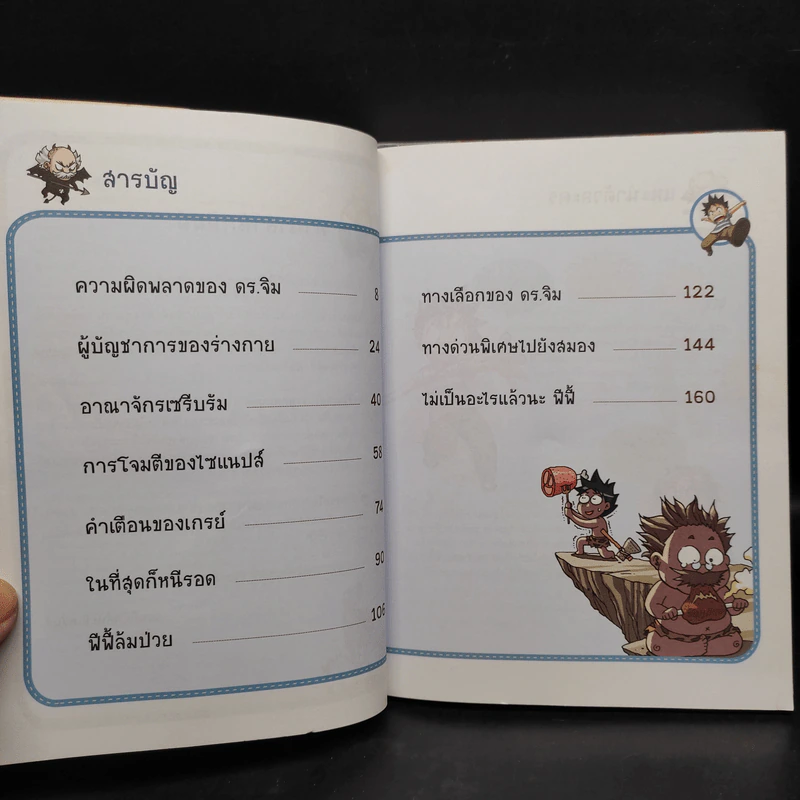 สารบัญ
ความผิดพลาดของ ดร.จิม 8
ผู้บัญชาการของร่างกาย 24
อาณาจักรเซรีบรัม 40
การโจมตีของไซแนปส์ 58
คำเตือนของเกรย์ 74
ในที่สุดก็หนีรอด 90
ฟีฟี้ล้มป่วย 106
ทางเลือกของ ดร.จิม 122
ทางด่วนพิเศษไปยังสมอง 144
ไม่เป็นอะไรแล้วนะ ฟีฟี้ 160